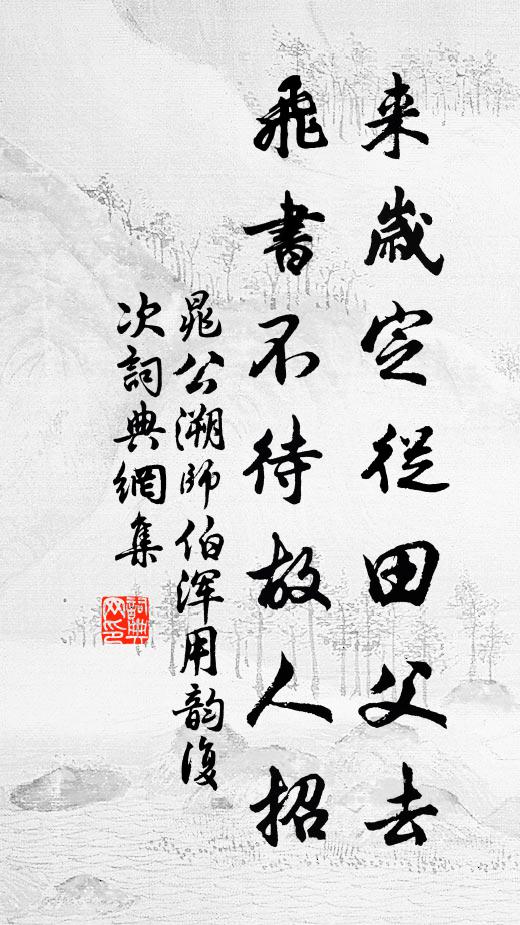 来歲定從田父去
飛書不待故人招
晁公溯師伯渾用韵復
次詞典網集
詞典網印